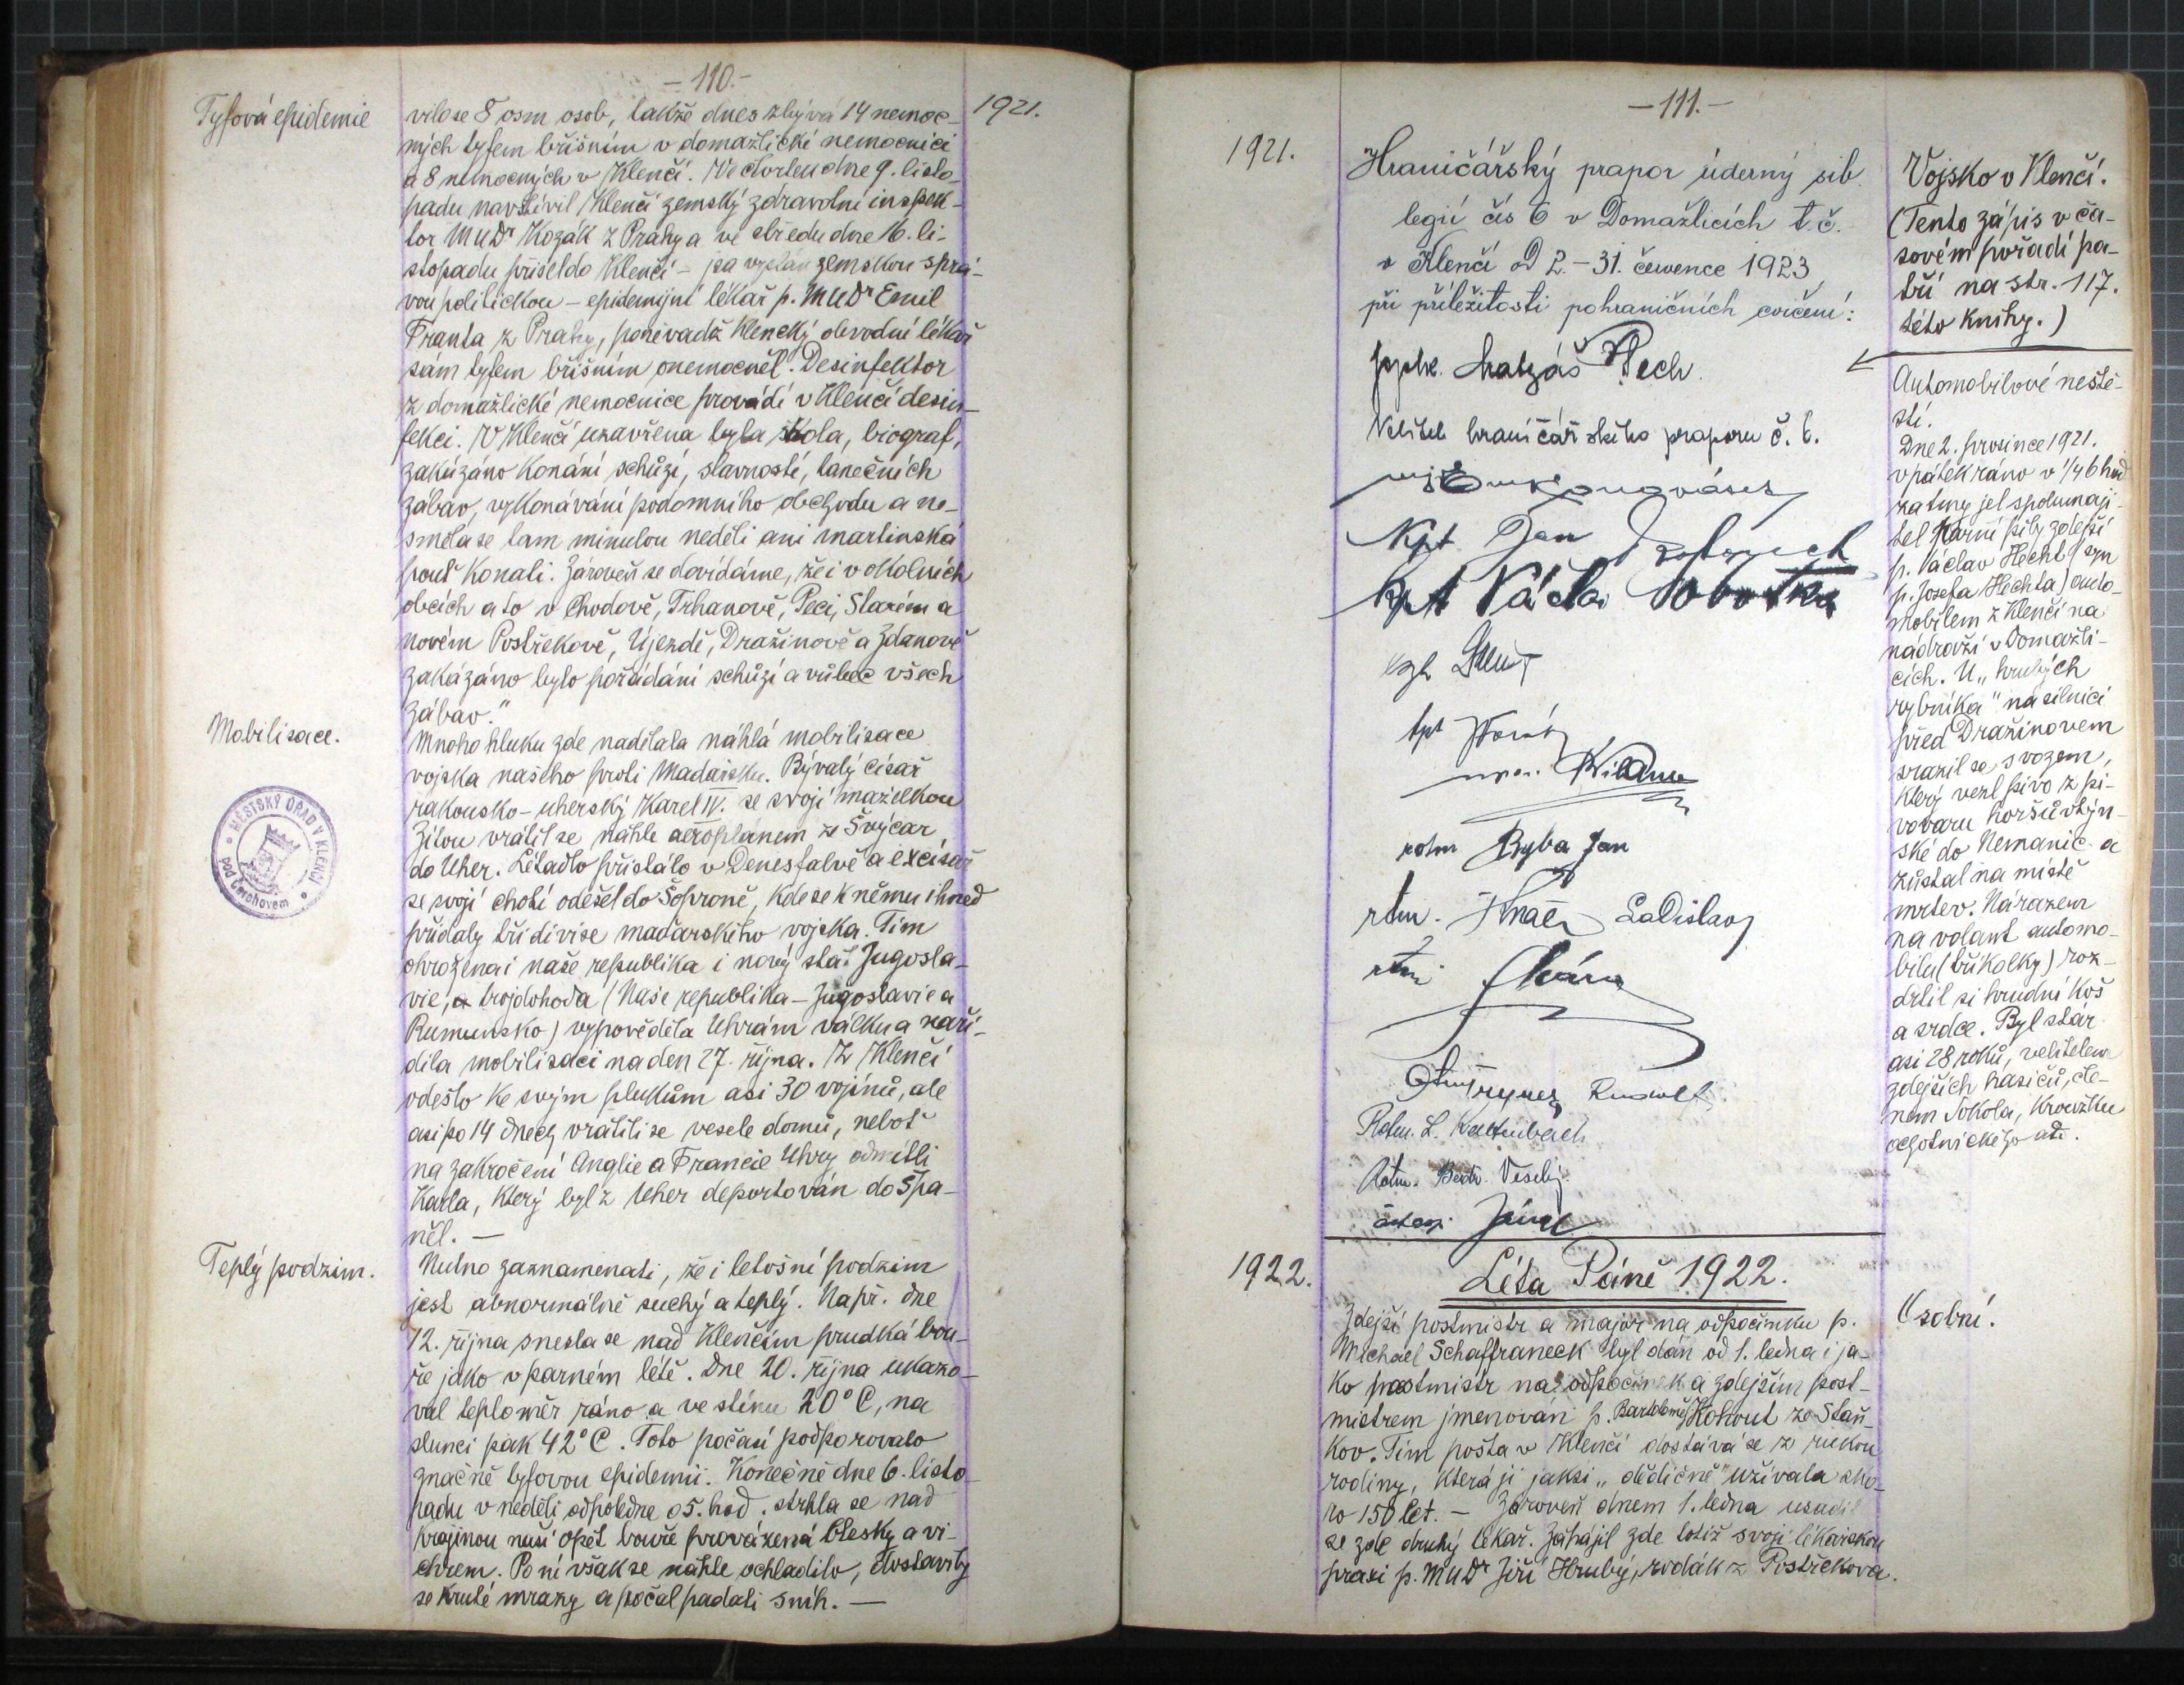 -110.-
1921.
Tyfová epidemie
vilo se 8 osm osob, takže dnes zbývá 14 nemoc-
ných tyfem břišním v domažlické nemocnici
a 8 nemocných v Klenčí. Ve čtvrtek dne 9. listo-
padu navštívil Klenčí zemský zdravotní inspek-
tor MUDr Kozák z Prahy a ve středu dne 16. li-
stopadu přišel do Klenčí - jsa vyslán zemskou sprá-
vou politickou - epidemijní lékař p. MUDr Emil
Franta z Prahy, poněvadž klenčský obvodní lékař
sám tyfem břišním onemocněl. Desinfektor
z domažlické nemocnice provádí v Klenčí desin-
fekci. V Klenčí uzavřena byla škola, biograf,
zakázáno konání schůzí, slavností, tanečních
zábav, vykonávání podomního obchodu a ne-
směla se tam minulou neděli ani martinská
pouť konati. Zároveň se dovídáme, že i v okolních
obcích a to v Chodově, Trhanově, Peci, Starém a
novém Postřekově, Újezdě, Dražinově a Ždanově
zakázáno bylo pořádání schůzí a vůbec všech
zábav."
Mobilisace.
Mnoho hluku zde nadělala náhlá mobilisace
vojska našeho proti Maďarsku. Bývalý císař
rakousko-uherský Karel IV. se svojí manželkou
Zitou vrátil se náhle aeroplánem ze Švýcar
do Uher. Létadlo přistálo v Denesfalvě a excísař
se svojí chotí odešel do Šoproně, kde se k němu ihned
přidaly tři divise maďarského vojska. Tím
ohrožena i naše republika i nový stát Jugosla-
vie, a trojdohoda (Naše republika - Jugoslavie a
Rumunsko) vypověděla Uhrám válku a naří-
dila mobilisaci na den 27. října. Z Klenčí
odešlo ke svým plukům asi 30 vojínů, ale
asi po 14 dnech vrátili se vesele domů, neboť
na zakročení Anglie a Francie Uhry odmítli
Karla, který byl z Uher deportován do Špa-
něl. -
MĚSTSKÝ ÚŘAD V KLENČÍ
pod Čerchovem
Teplý podzim.
Nutno zaznamenati, že i letošní podzim
jest abnormálně suchý a teplý. Např. dne
12. října snesla se nad Klenčím prudká bou-
ře jako v parném létě. Dne 20. října ukazo-
val teploměr ráno a ve stínu 20° C, na
slunci pak 42° C. Toto počasí podporovalo
značně tyfovou epidemii. Konečně dne 6. listo-
padu v neděli odpoledne o 5. hod. strhla se nad
krajinou naší opět bouře provázená blesky a vi-
chrem. Po ní však se náhle ochladilo, dostavily
se kruté mrazy a počal padati sníh. -
-111.-
1921.
Hraničářský prapor úderný sib.
legií čís 6 v Domažlicích t.č.
v Klenčí od 2.-31. července 1923
při příležitosti pohraničních cvičení:
Pech
Velitel hraničářského praporu č. 6.
Kpt Jan
Kpt Václav Sobotka
rotm Ryba Jan
rtm. Ladislav
Rotm. L. Kaltenbach
Rotm. Bedř. Veselý
Vojsko v Klenčí.
(Tento zápis v ča-
sovém pořadí pa-
tří na str. 117.
této knihy.)
Automobilové neště-
stí.
Dne 2. prosince 1921.
v pátek ráno v 1/4 6 hod
za tmy jel spolumaji-
tel parní pily zdejší
p. Václav Hecht (syn
p. Josefa Hechta) auto-
mobilem z Klenčí na
nádraží v Domažli-
cích. U "hrubých
rybníka" na silnici
před Dražinovem
srazil se s vozem,
který vezl pivo z pi-
vovaru horšůvtýn-
ské do Nemanic a
zůstal na místě
mrtev. Nárazem
na volant automo-
bilu (tříkolky) roz-
drtil si hrudní koš
a srdce. Byl stár
asi 28 roků, velitelem
zdejších hasičů, čle-
nem Sokola, kroužku
ochotnického atd.
1922.
Léta Páně 1922.
Osobní.
Zdejší postmistr a major na odpočinku p.
Michael Schaffraneck byl dán od 1. ledna i ja-
ko postmistr na odpočinek a zdejším post-
mistrem jmenován p. Bartoloměj Kohout ze Staň-
kov. Tím pošta v Klenčí dostává se z rukou
rodiny, která ji jaksi "dědičně" užívala sko-
ro 150 let. - Zároveň dnem 1. ledna usadil
se zde druhý lékař. Zahájil zde totiž svoji lékařskou
praxi p. MUDr Jiří Hrubý, rodák z Postřekova.